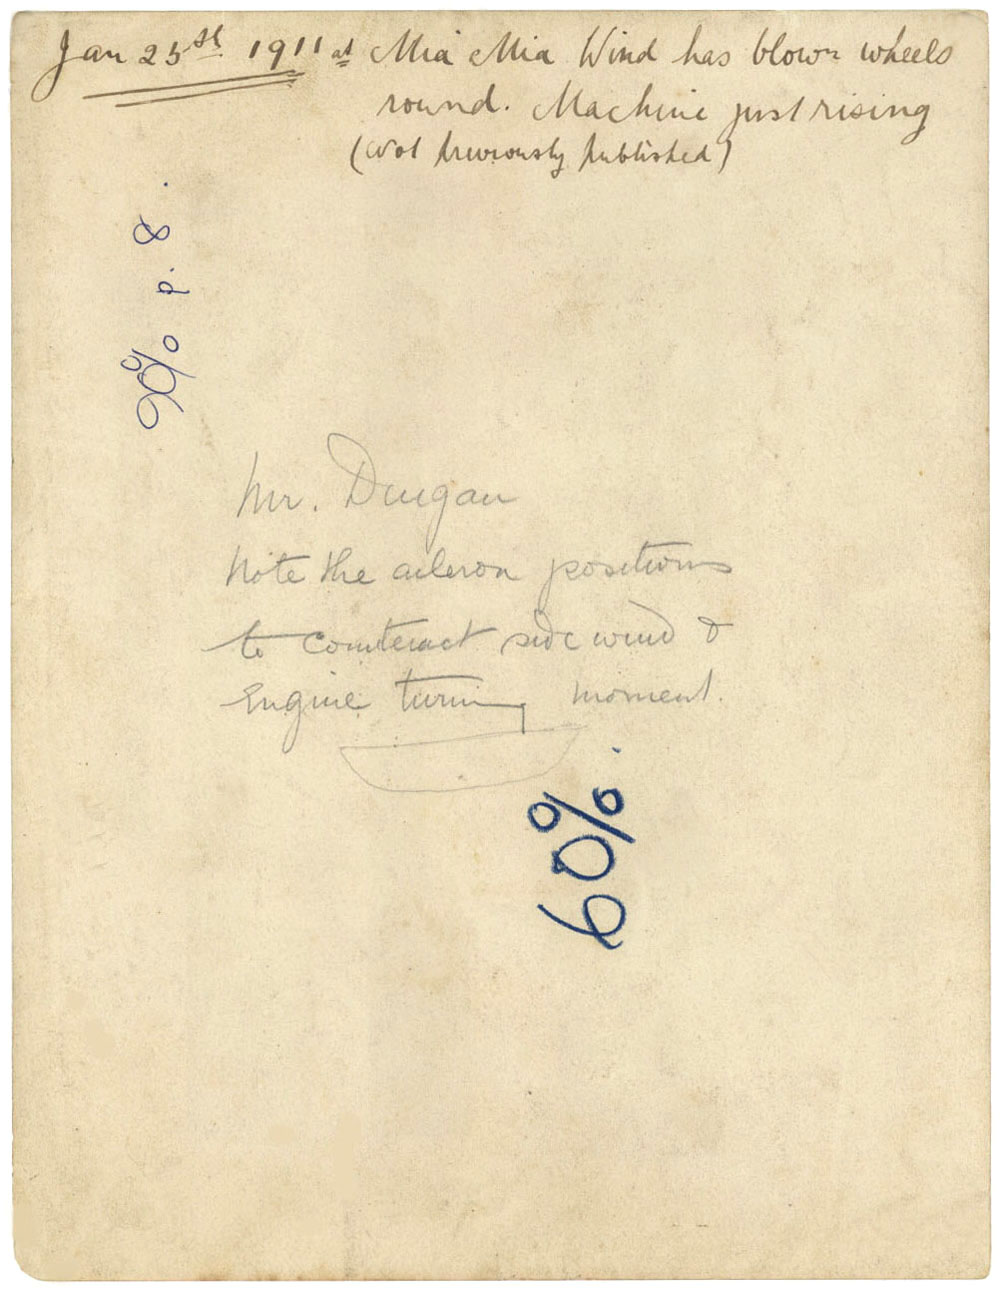 Jan 25st 1911 at Mia Mia Wind has blown wheels
round. Machine just rising
(Not previously published)
p. 8.
Mr. Duigan
Note the aileron positions
to counteract side wind &
Engine turning moment.
60%.